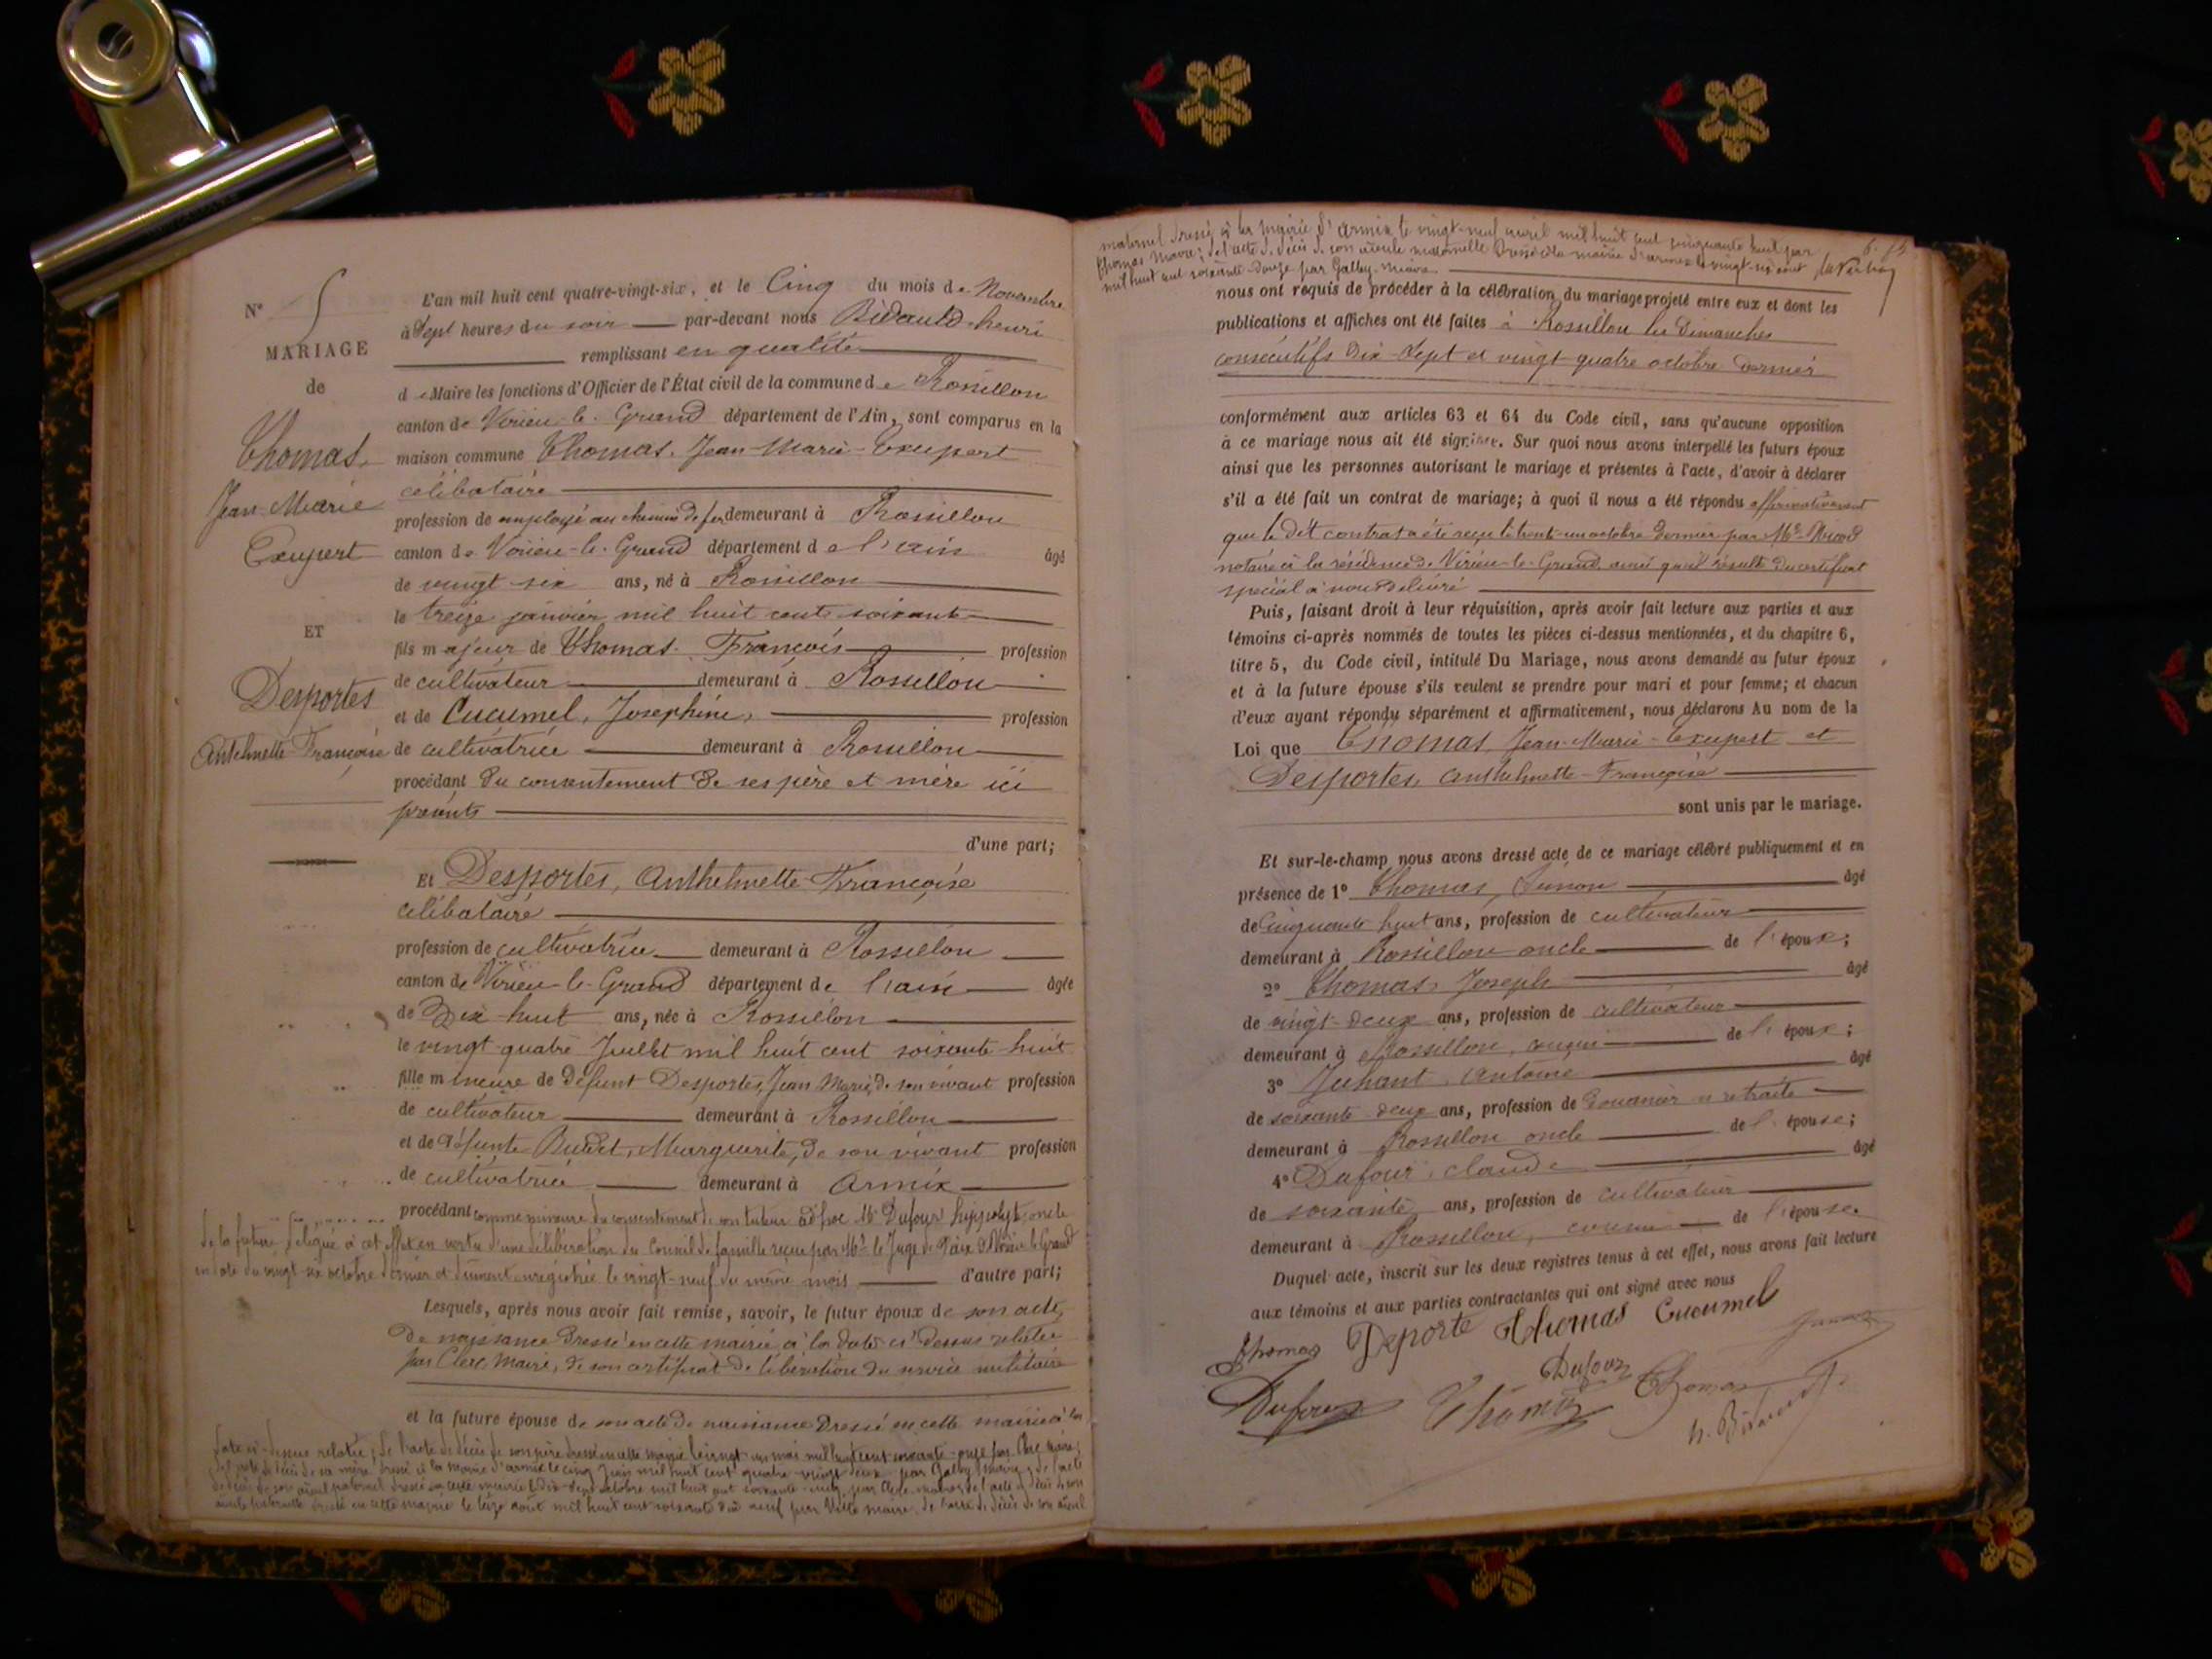 N° 5
MARIAGE
de
Thomas
Jean-Marie
Exupert
ET
Desportes
Anthelmette Françoise
L'an mil huit cent quatre-vingt-six, et le Cinq du mois de Novembre
à Sept heures du soir par-devant nous Bidauld henri
remplissant en qualité
de Maire les fonctions d'Officier de l'État civil de la commune de Rossillon
canton de Virieu-le-Grand département de l'Ain, sont comparus en la
maison commune Thomas, Jean-Marie-Exupert
célibataire
profession de employé au chemin de fer demeurant à Rossillon
canton de Virieu-le-Grand département de l'ain âgé
de vingt-six ans, né à Rossillon
le treize janvier mil huit cent soixante
fils majeur de Thomas François profession
de cultivateur demeurant à Rossillon
et de Cucumel, Josephine, profession
de cultivatrice demeurant à Rossillon
procédant du consentement de ses père et mère ici
présents
d'une part;
Et Desportes, Anthelmette-Françoise
célibataire
profession de cultivatrice demeurant à Rossillon
canton de Virieu-le-Grand département de l'ain âgée
de Dix-huit ans, née à Rossillon
le vingt-quatre Juillet mil huit cent soixante-huit
fille mineure de défunt Desportes, Jean Marie, de son vivant profession
de cultivateur demeurant à Rossillon
et de défunte Marguerite, de son vivant profession
de cultivatrice demeurant à Armix
procédant comme mineure du consentement de son tuteur ad hoc Mr Dufour hippolyte, oncle
de la future délégué à cet effet en vertu d'une délibération du Conseil de famille reçue par Mr le Juge de Paix de Virieu-le-Grand
en date du vingt-six octobre dernier et dûment enregistrée le vingt-neuf du même mois d'autre part;
Lesquels, après nous avoir fait remise, savoir, le futur époux de son acte
de naissance dressé en cette mairie à la date ci-dessus relatée
par Clerc, Maire, de son certificat de libération du service militaire
et la future épouse de son acte de naissance dressé en cette mairie à la
date ci-dessus relatée; de l'acte de décès de son père dressé en cette mairie le vingt-un mai mil huit cent soixante-onze par Clerc maire;
de l'acte de décès de sa mère dressé à la mairie d'armix le cinq Juin mil huit cent quatre-vingt-deux par Galley, maire; de l'acte
de décès de son aïeul paternel dressé en cette mairie le dix-sept octobre mil huit cent soixante par Clerc, maire; de l'acte de décès de son
aïeule paternelle dressé en cette mairie le août mil huit cent soixante dix neuf par maire; de l'acte de décès de son aïeul
maternel dressé à la mairie d'armix le vingt-neuf avril mil huit cent cinquante huit par
Thomas maire; de l'acte de décès de son aïeule maternelle dressé à la mairie d'armix le vingt
mil huit cent soixante-douze par Galley maire
nous ont requis de procéder à la célébration du mariage projeté entre eux et dont les
publications et affiches ont été faites à Rossillon les Dimanches
consécutifs Dix-Sept et vingt-quatre octobre dernier
conformément aux articles 63 et 64 du Code civil, sans qu'aucune opposition
à ce mariage nous ait été signifiée. Sur quoi nous avons interpellé les futurs époux
ainsi que les personnes autorisant le mariage et présentes à l'acte, d'avoir à déclarer
s'il a été fait un contrat de mariage; à quoi il nous a été répondu affirmativement
que le dit contrat a été reçu le trente-un octobre dernier par Me
notaire à la résidence de Virieu-le-Grand, ainsi qu'il résulte du certificat
spécial à nous délivré
Puis, faisant droit à leur réquisition, après avoir fait lecture aux parties et aux
témoins ci-après nommés de toutes les pièces ci-dessus mentionnées, et du chapitre 6,
titre 5, du Code civil, intitulé Du Mariage, nous avons demandé au futur époux
et à la future épouse s'ils veulent se prendre pour mari et pour femme; et chacun
d'eux ayant répondu séparément et affirmativement, nous déclarons Au nom de la
Loi que Thomas, Jean-Marie-Exupert et
Desportes, Anthelmette-Françoise
sont unis par le mariage.
Et sur-le-champ nous avons dressé acte de ce mariage célébré publiquement et en
présence de 1° Thomas, Simon âgé
de Cinquante huit ans, profession de cultivateur
demeurant à Rossillon oncle de l'époux;
2° Thomas, Joseph âgé
de vingt-deux ans, profession de cultivateur
demeurant à Rossillon, cousin de l'époux;
3° Juhant, Antoine âgé
de soixante-deux ans, profession de Douanier en retraite
demeurant à Rossillon oncle de l'épouse;
4° Dufour, claude âgé
de soixante ans, profession de cultivateur
demeurant à Rossillon, cousin de l'épouse.
Duquel acte, inscrit sur les deux registres tenus à cet effet, nous avons fait lecture
aux témoins et aux parties contractantes qui ont signé avec nous
Thomas Deporte Thomas Cucumel
Dufour
Dufour Thomas Thomas
h. Bidauld